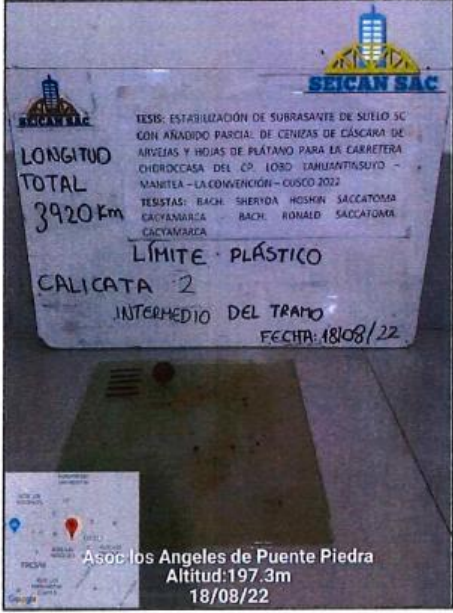 SEICAN SAC
SEICAN SAC
TESIS: ESTABILIZACIÓN DE SUBRASANTE DE SUELO SC
CON AÑADIDO PARCIAL DE CENIZAS DE CÁSCARA DE
ARVEJAS Y HOJAS DE PLÁTANO PARA LA CARRETERA
CHOROCCASA DEL CP. LOBO TAHUANTINSUYO –
MANITEA – LA CONVENCIÓN – CUSCO 2022
TESISTAS: BACH. SHERYDA HOSKIN SACCATOMA
CACYAMARCA BACH. RONALD SACCATOMA
CACYAMARCA
LONGITUD
TOTAL
3920 Km
LÍMITE PLÁSTICO
CALICATA 2
INTERMEDIO DEL TRAMO
FECHA: 18/08/22
Google
Asoc los Angeles de Puente Piedra
Altitud:197.3m
18/08/22